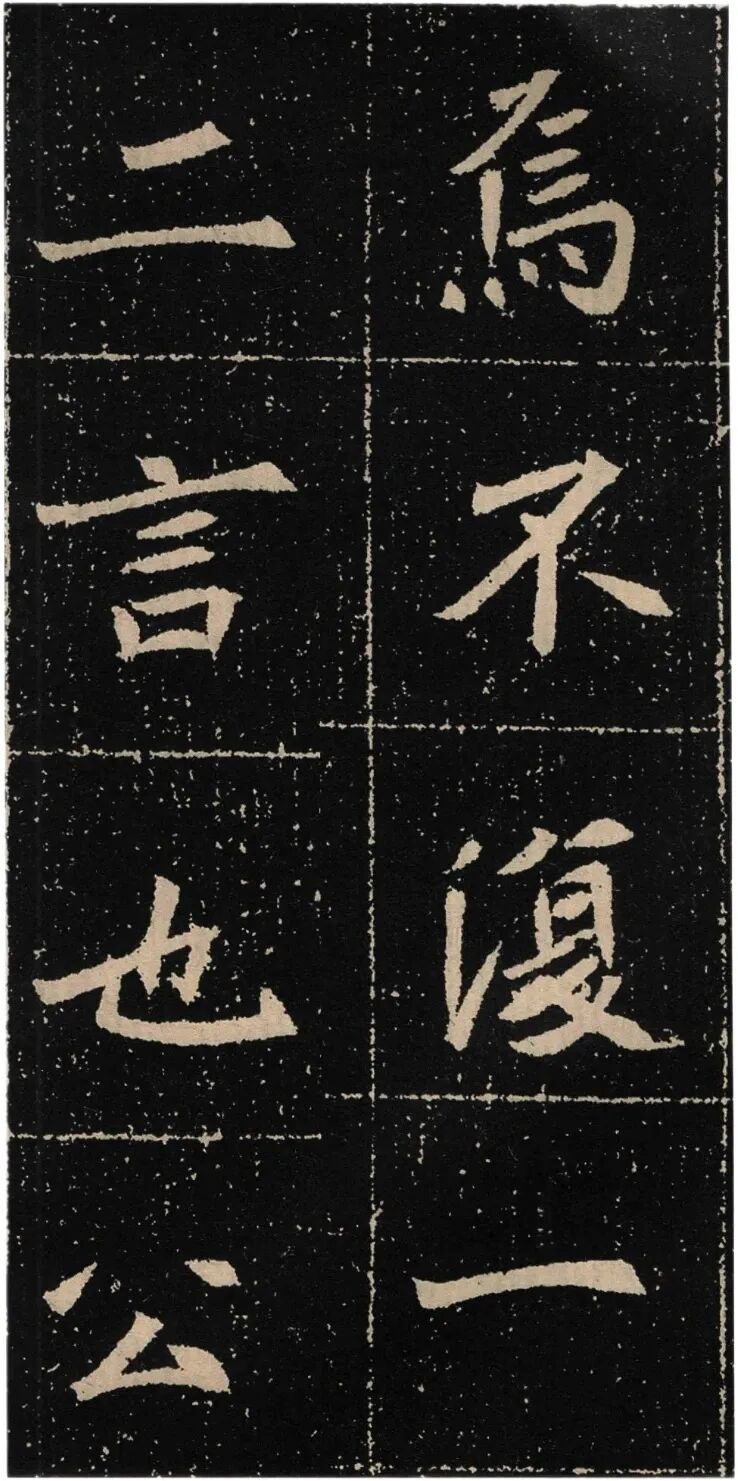 為不復一
二言也公